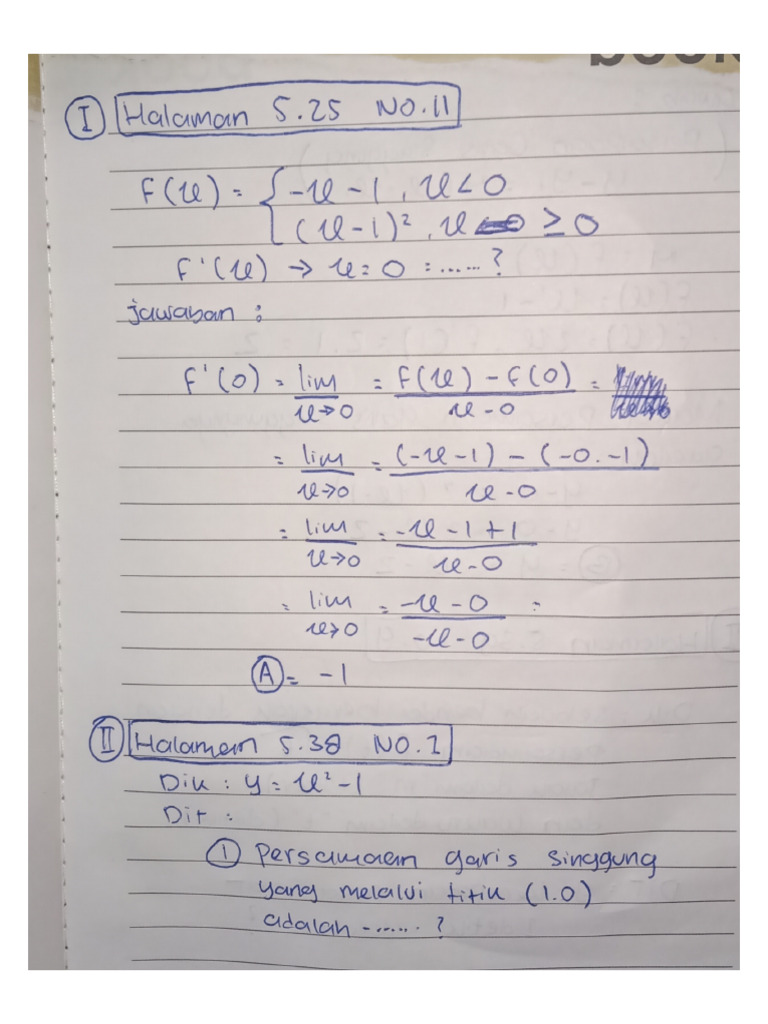 I Halaman 5.25 NO.11
F(x) = { -x - 1 , x < 0
(x-1)² , x ≥ 0
F'(x) → x = 0 = ......?
jawaban :
F'(0) = lim x→0 = F(x) - F(0) / x - 0 =
= lim x→0 = (-x-1) - (-0.-1) / x - 0
= lim x→0 = -x - 1 + 1 / x - 0
= lim x→0 = -x - 0 / -x - 0 =
A = -1
II Halaman 5.38 NO.1
Dik : y = x² - 1
Dit :
1 Persamaan garis singgung
yang melalui titik (1.0)
adalah ......?